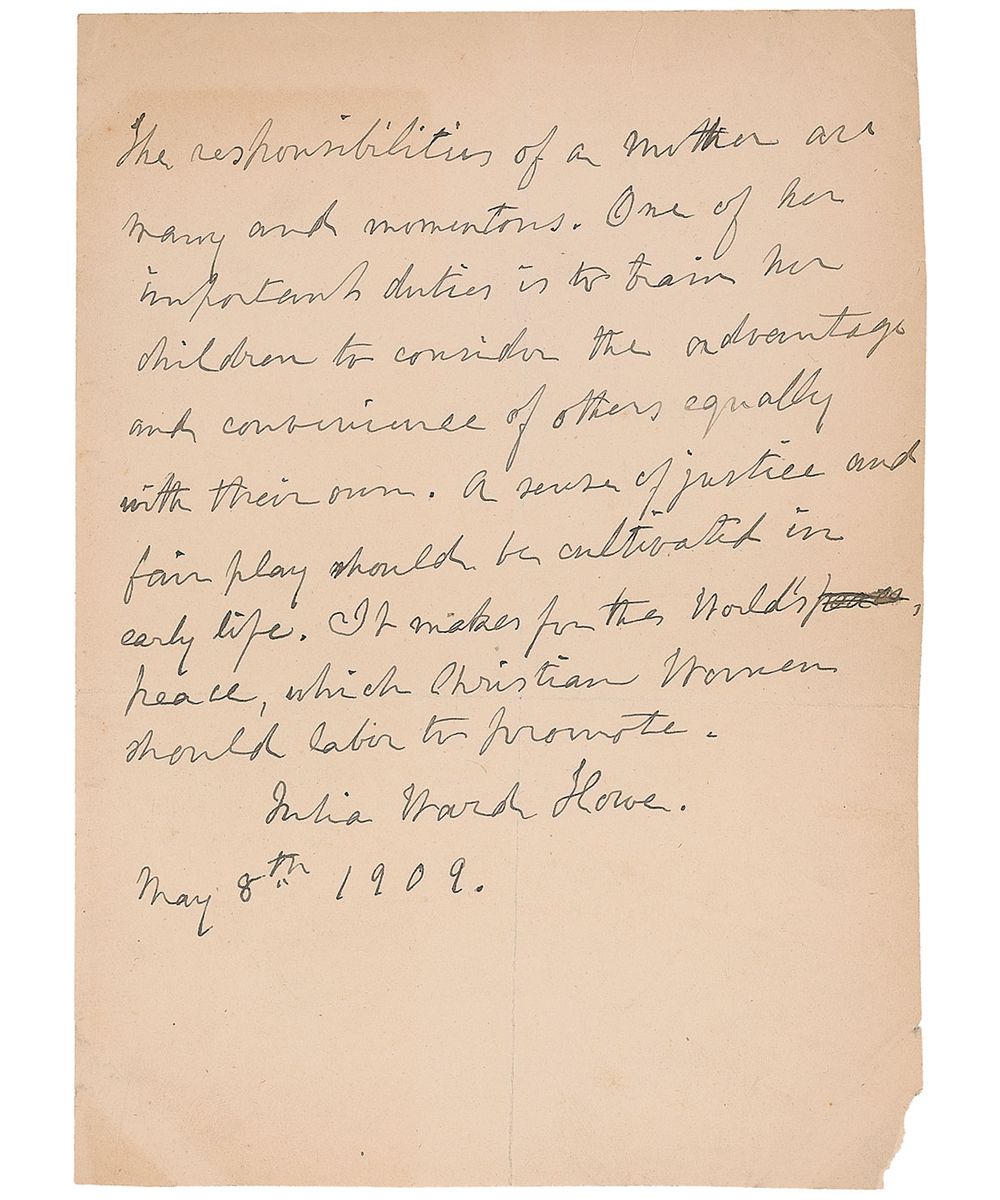 The responsibilities of a mother are
many and momentous. One of her
important duties is to train her
children to consider the advantage
and convenience of others equally
with their own. A sense of justice and
fair play should be cultivated in
early life. It makes for the World's peace,
peace, which Christian Women
should labor to promote.
Julia Ward Howe.
May 8th 1909.